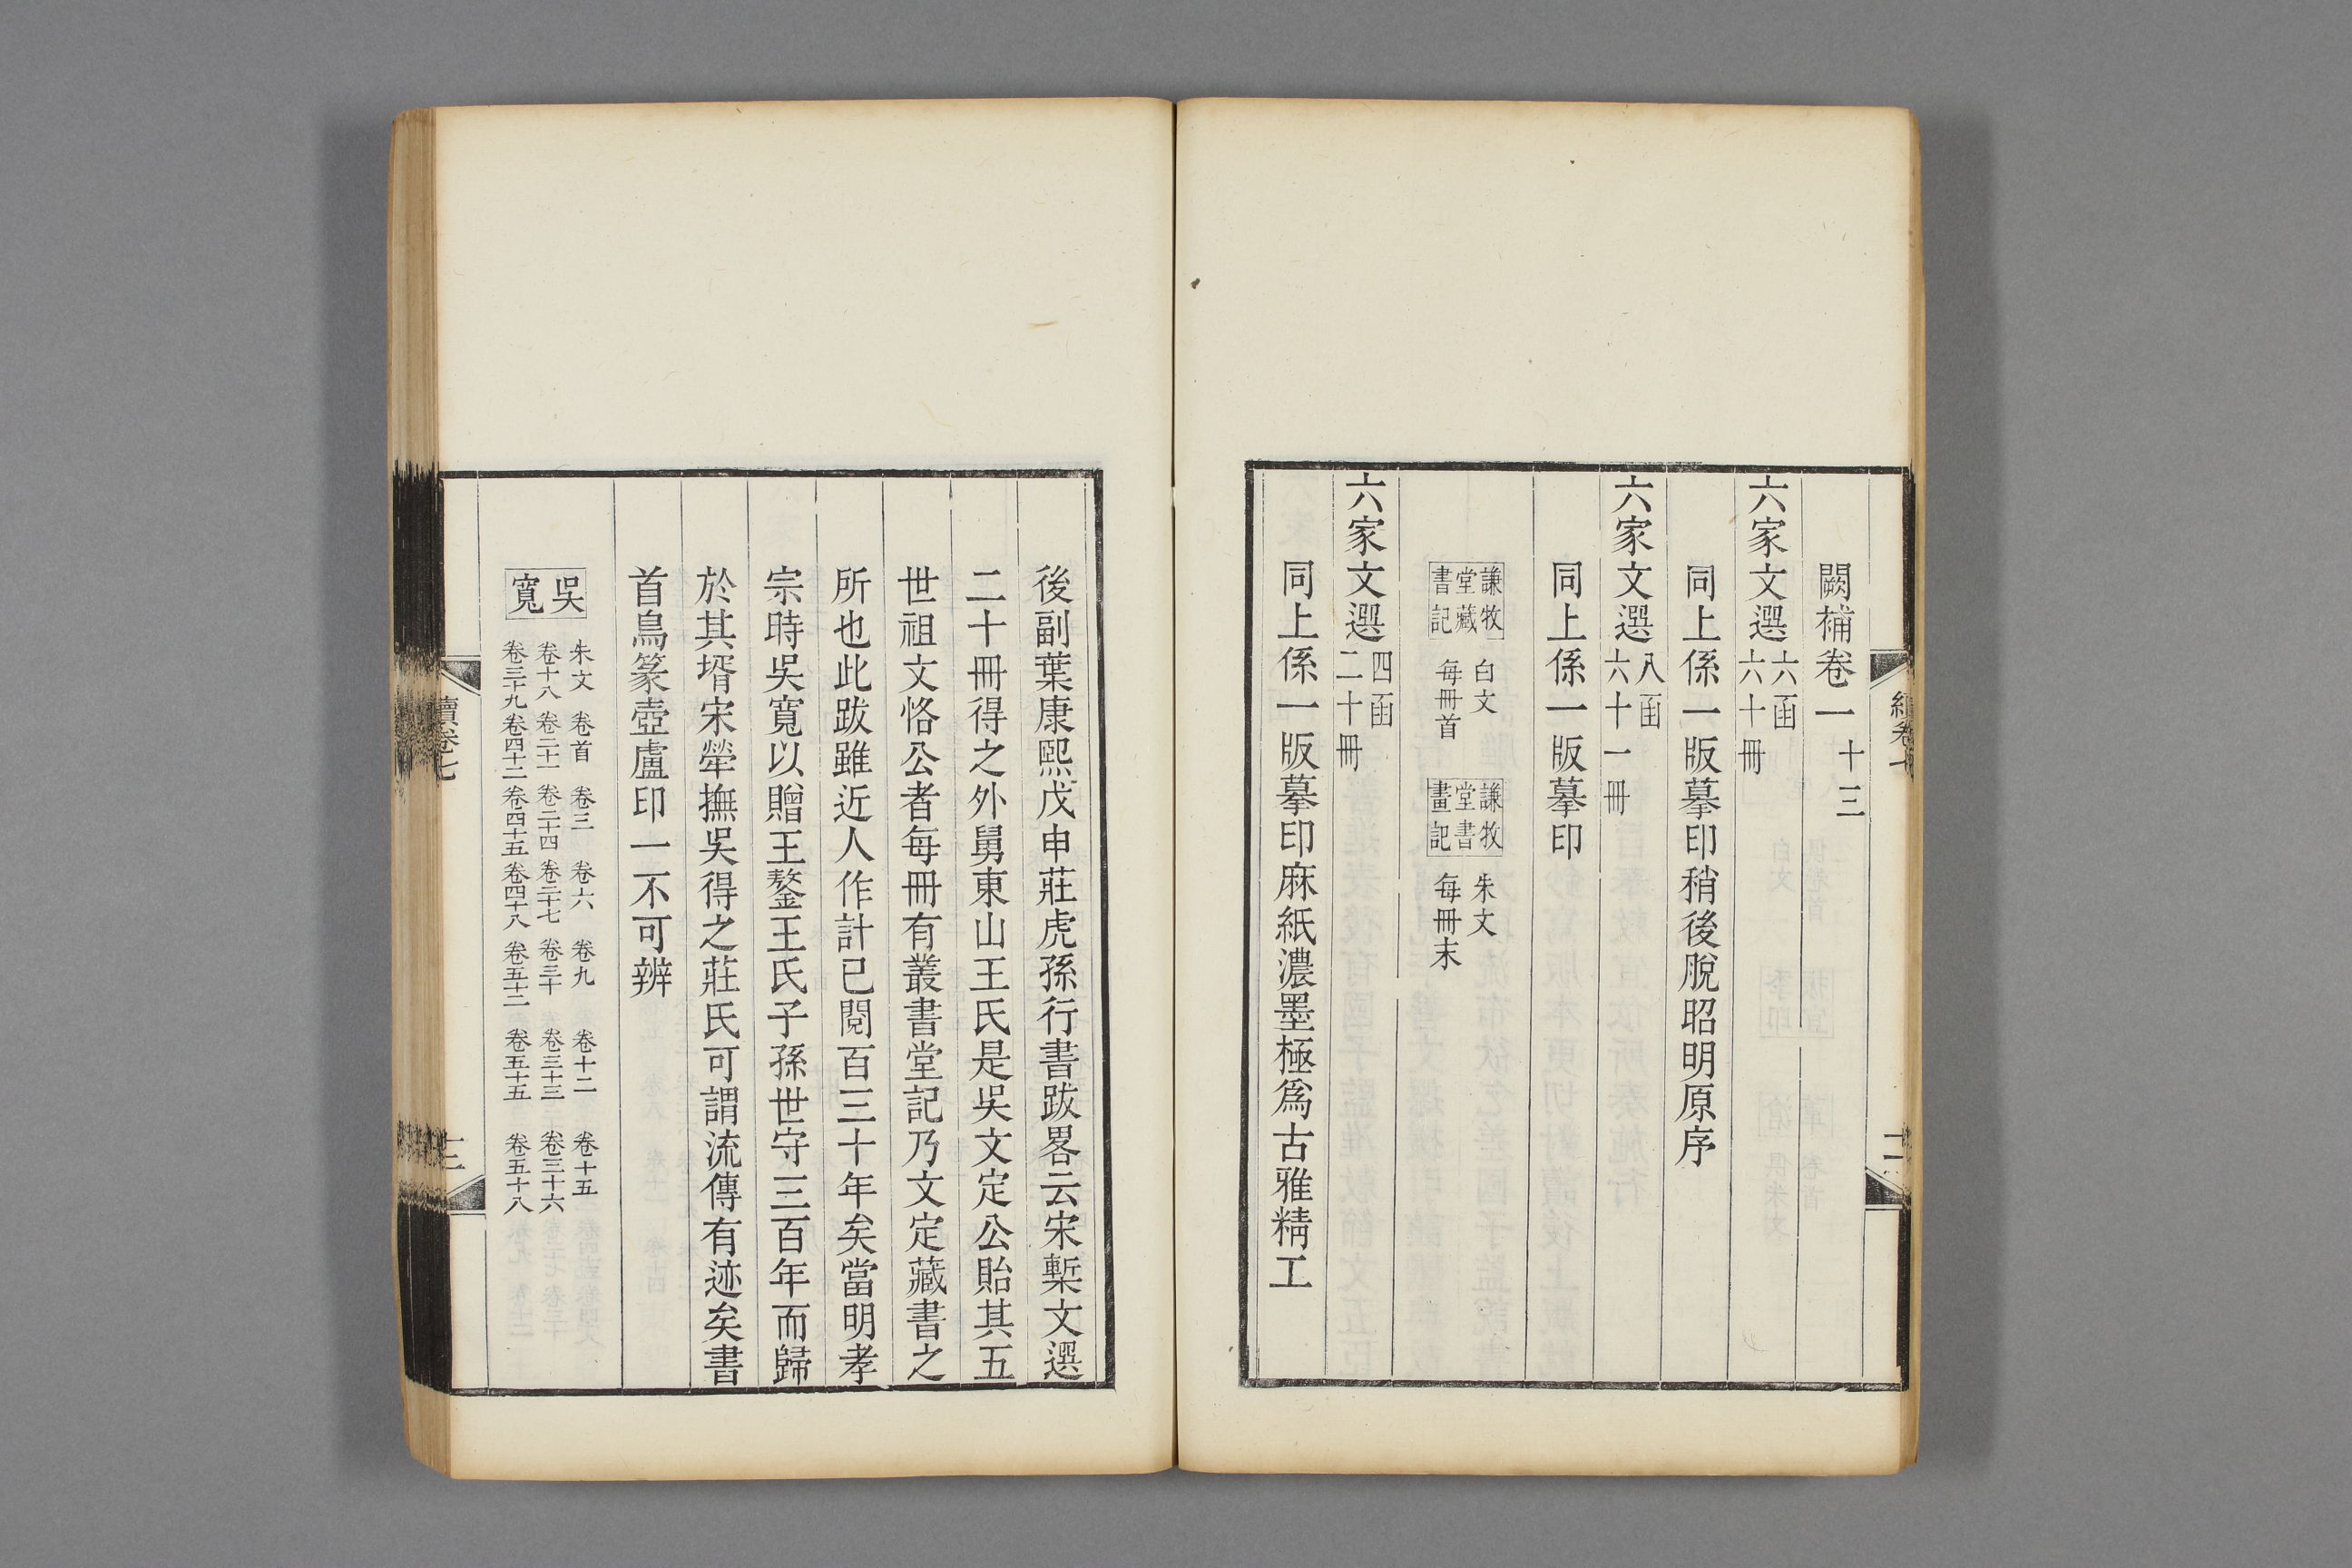 闕補卷一 十三
六家文選 六函 六十冊
同上係一版摹印稍後脫昭明原序
六家文選 八函 六十一冊
同上係一版摹印
謙牧堂藏書記 白文 每冊首 謙牧堂書畫記 朱文 每冊末
六家文選 四函 二十冊
同上係一版摹印麻紙濃墨極爲古雅精工
後副葉康熙戊申莊虎孫行書跋畧云宋槧文選
二十冊得之外舅東山王氏是吳文定公貽其五
世祖文恪公者每冊有叢書堂記乃文定藏書之
所也此跋雖近人作計已閱百三十年矣當明孝
宗時吳寬以贈王鏊王氏子孫世守三百年而歸
於其壻宋犖撫吳得之莊氏可謂流傳有迹矣書
首鳥篆壺盧印一不可辨
吳寬
朱文 卷首 卷三 卷六 卷九 卷十二 卷十五
卷十八 卷二十一 卷二十四 卷二十七 卷三十 卷三十三 卷三十六
卷三十九 卷四十二 卷四十五 卷四十八 卷五十二 卷五十五 卷五十八
續卷七
十二